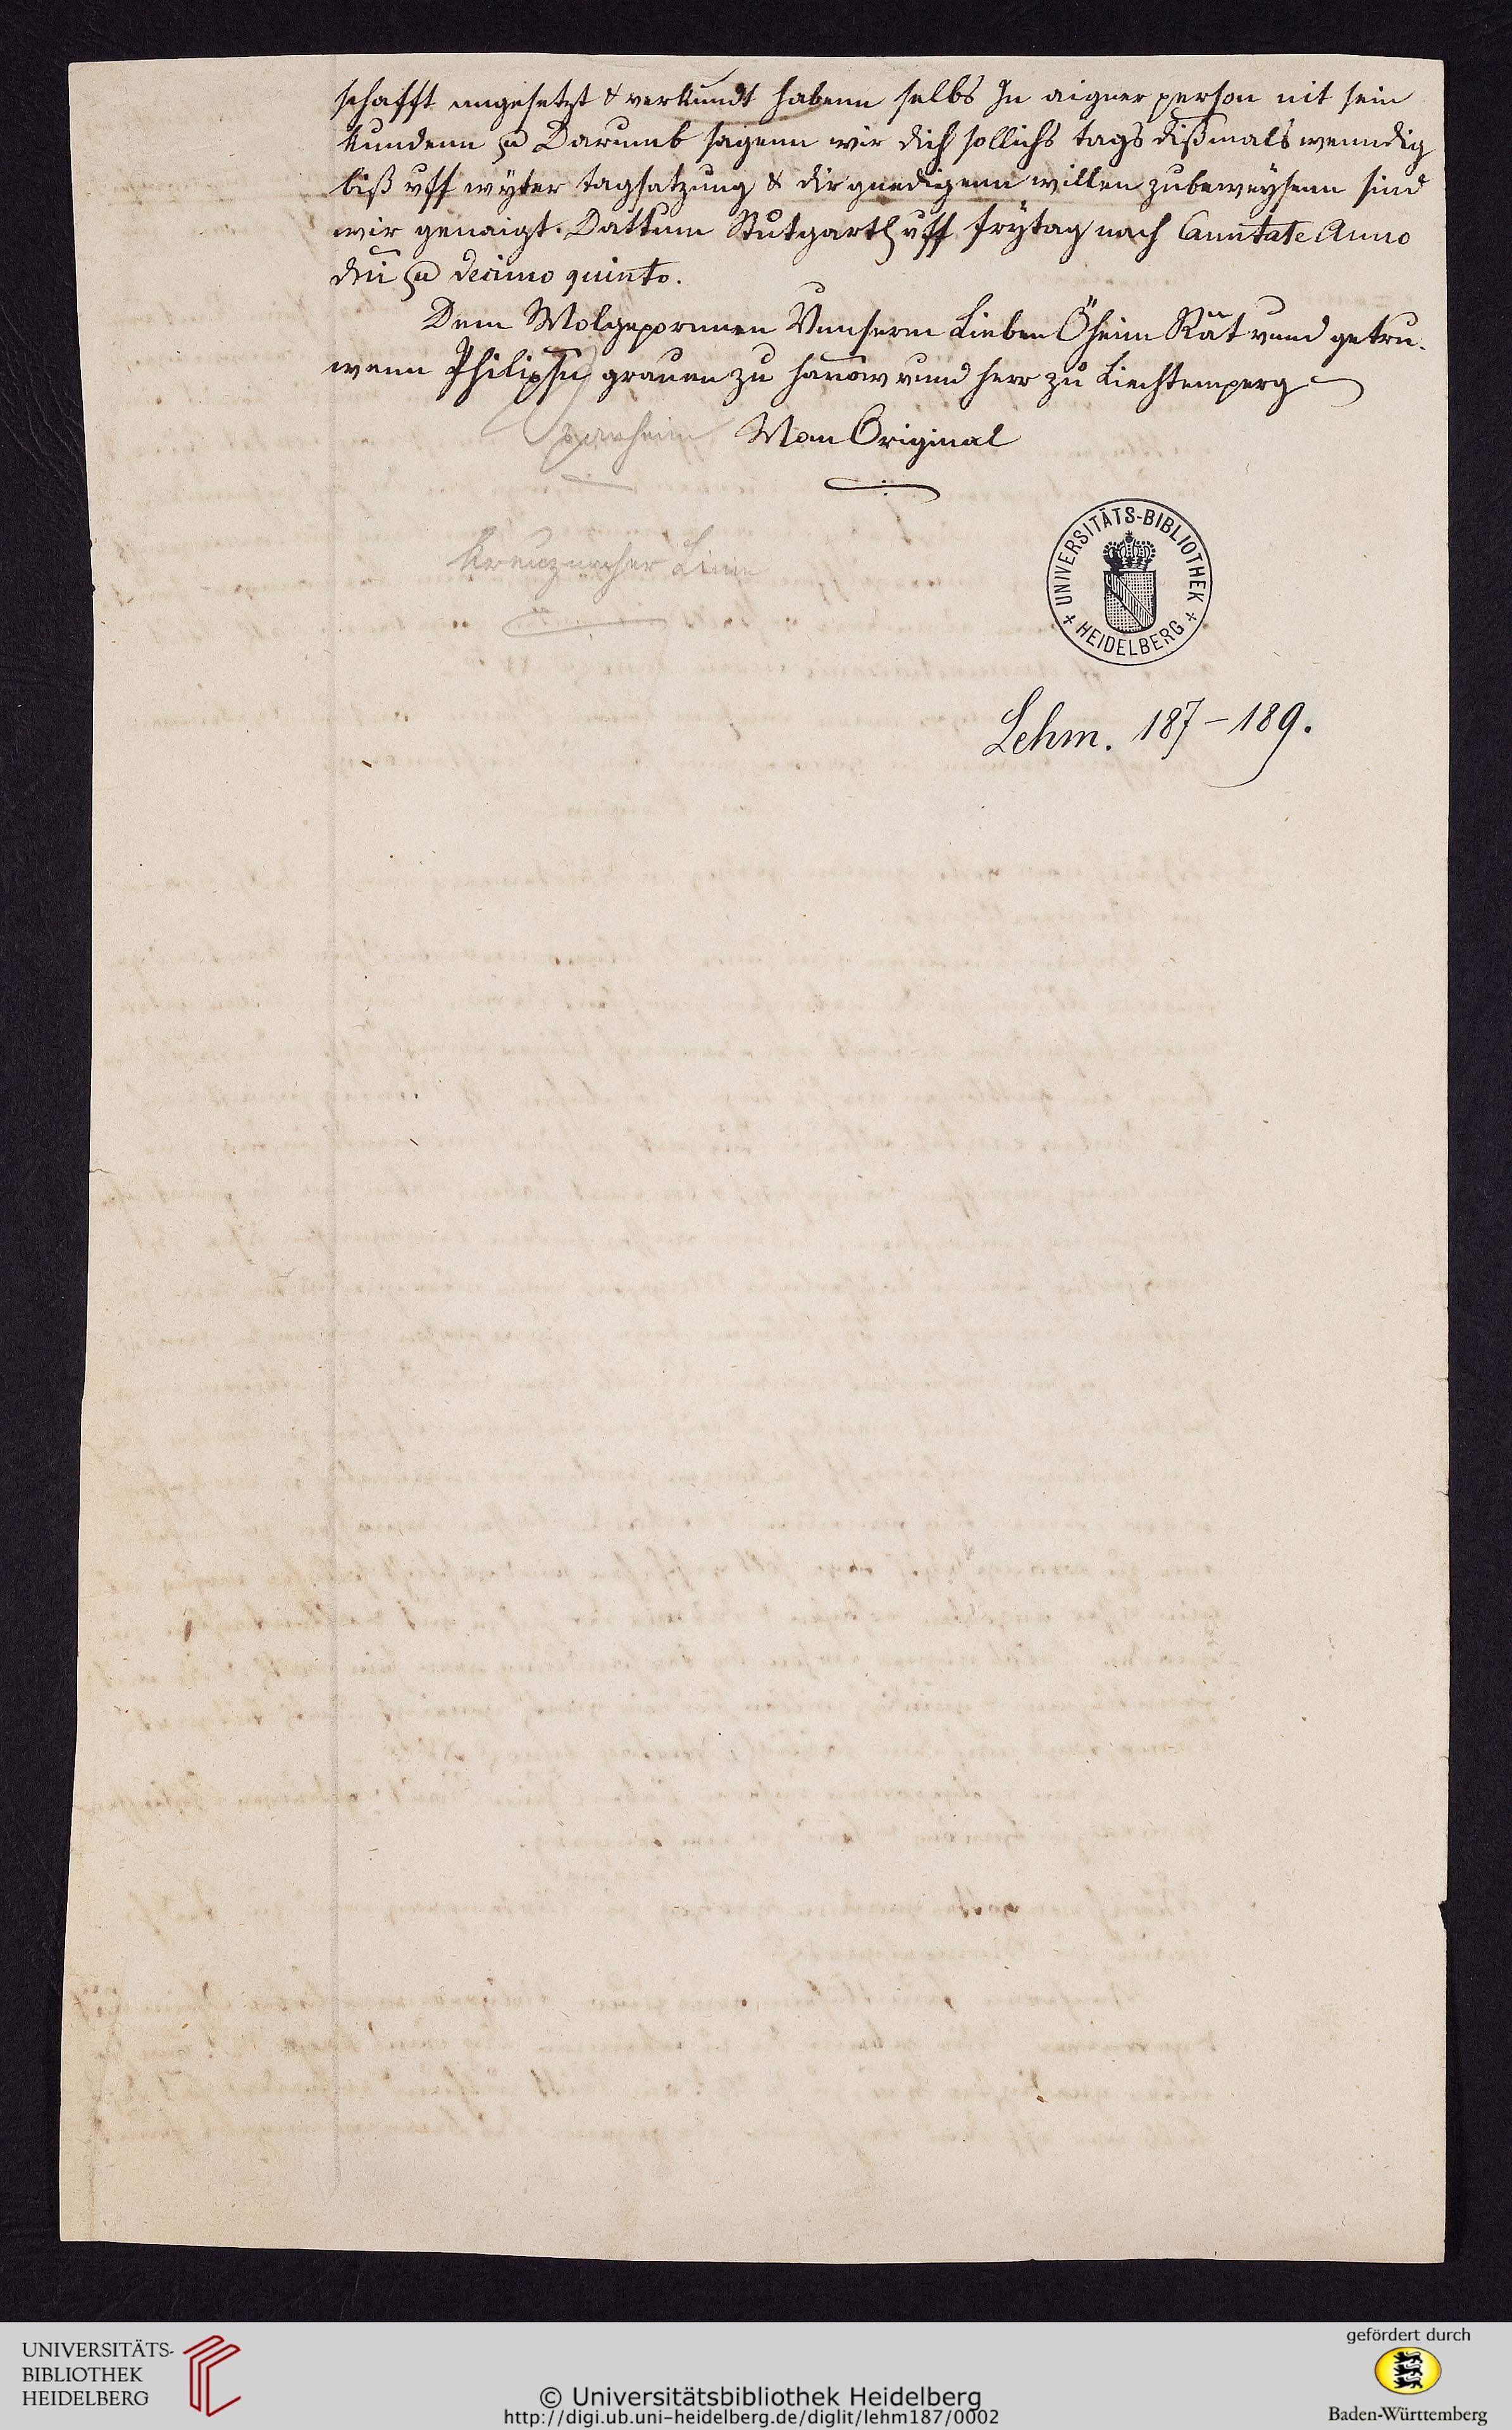 schafft angesetzt & verkundt habenn selbs In aigner person nit sein
kundenn Darumb sagenn wir dich sollichs tags dißmals wenndig
biß vff wyter tagsatzung & dir gnedigenn willen zubeweysenn sind
wir genaigt. Dattum Stutgarth vff frytag nach Canntate Anno
dni decimo quinto.
Dem Wolgepornnen Vnnserm Lieben Öheim Rät vnnd getru-
wenn Philipsn grauen zu hanow vnnd herr zu Liechtemperg
Vom Original
Kreuznacher Linie
UNIVERSITÄTS-BIBLIOTHEK
HEIDELBERG
Lehm. 187-189.
UNIVERSITÄTS-
BIBLIOTHEK
HEIDELBERG
© Universitätsbibliothek Heidelberg
http://digi.ub.uni-heidelberg.de/diglit/lehm187/0002
gefördert durch
Baden-Württemberg